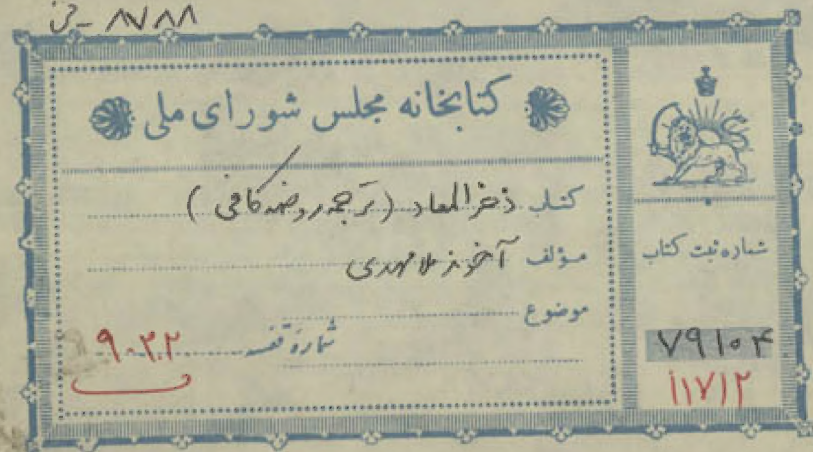 ۸۷۸۸ - خن
کتابخانه مجلس شورای ملی
کتاب ذخرالمعاد (ترجمه روضه کافی)
مؤلف آخوند ملا مهدی
موضوع
شماره قفسه ۹۰۳۲
شماره ثبت کتاب
۷۹۱۰۴
۱۱۷۱۲